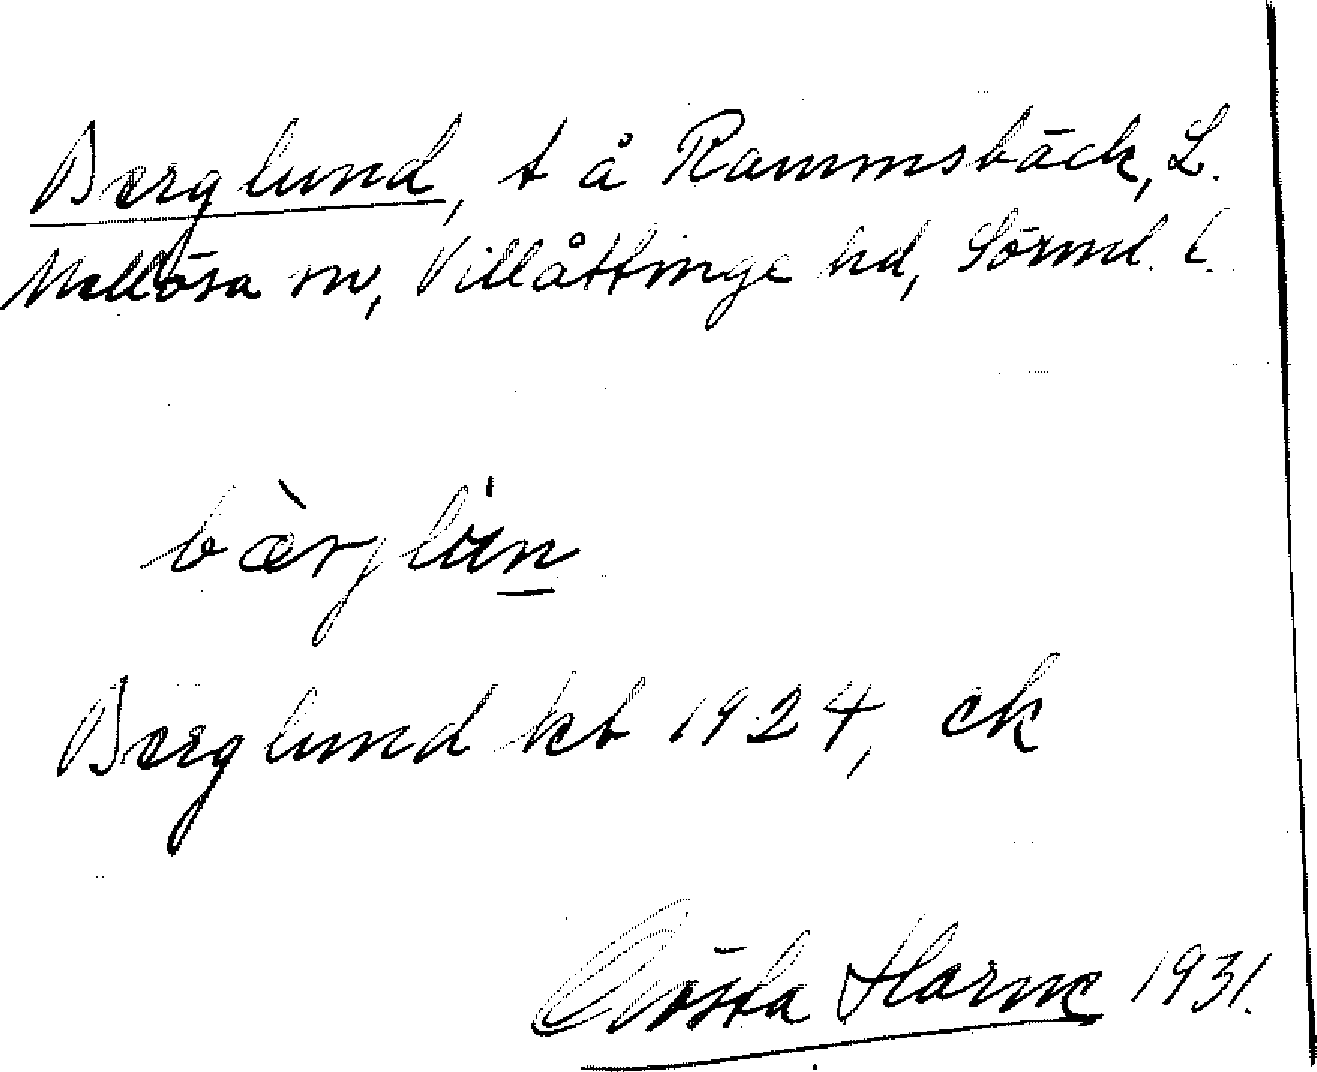 Berglund, t å Rammsbäck, L.
Mellösa sn, Villåttinge hd, Sörml. l.
bærglun
Berglund kb 1924, ek
Gösta Harne 1931.